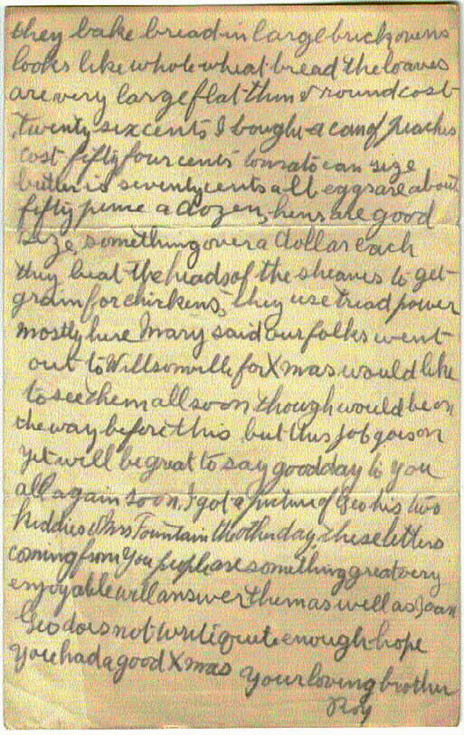 they bake bread in large brick ovens
looks like whole wheat bread the loaves
are very large flat thin & round cost
twenty six cents I bought a can of peaches
cost fifty four cents tomato can size
butter is seventy cents a lb eggs are about
fifty pence a dozen, hens are good
size something over a dollar each
they beat the heads of the sheaves to get
grain for chickens, they use tread power
mostly here Mary said our folks went
out to Willsonville for Xmas would like
to see them all soon though would be on
the way before this but this job goes on
yet will be great to say good day to you
all again soon, I got a picture of Geo his two
kiddies & Mrs Fountain the other day, these letters
coming from you people are something great very
enjoyable will answer them as well as I can
Geo does not write quite enough hope
you had a good Xmas your loving brother
Roy